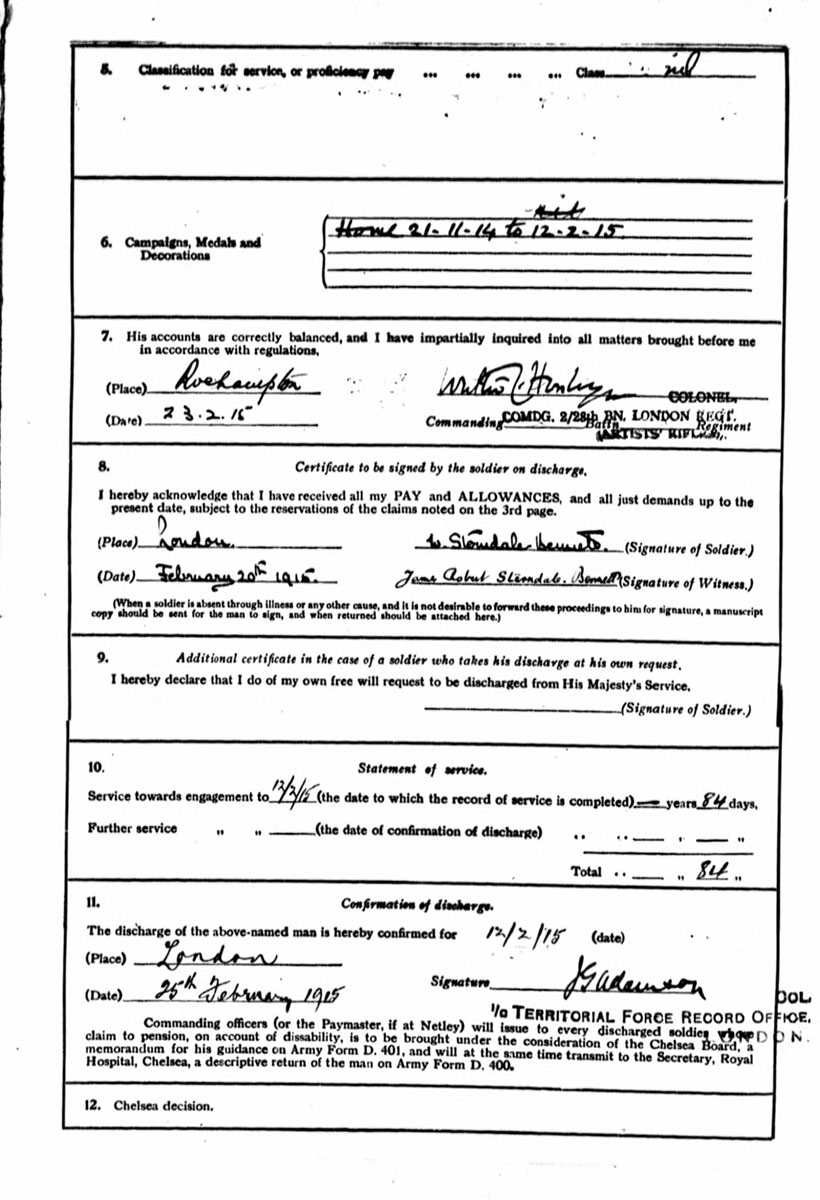 5. Classification for service, or proficiency pay ... ... ... ... Class nil
nil
6. Campaigns, Medals and Decorations
Home 21-11-14 to 12-2-15
7. His accounts are correctly balanced, and I have impartially inquired into all matters brought before me
in accordance with regulations.
(Place) Roehampton
COLONEL,
(Date) 23.2.15
Commanding COMDG. 2/28th BN. LONDON REGT.
Battn Regiment
(ARTISTS' RIFLES).
8. Certificate to be signed by the soldier on discharge.
I hereby acknowledge that I have received all my PAY and ALLOWANCES, and all just demands up to the
present date, subject to the reservations of the claims noted on the 3rd page.
(Place) London. W. Sterndale Bennett. (Signature of Soldier.)
(Date) February 20th 1915. James Robert Sterndale. Bennett (Signature of Witness.)
(When a soldier is absent through illness or any other cause, and it is not desirable to forward these proceedings to him for signature, a manuscript
copy should be sent for the man to sign, and when returned should be attached here.)
9. Additional certificate in the case of a soldier who takes his discharge at his own request.
I hereby declare that I do of my own free will request to be discharged from His Majesty's Service,
(Signature of Soldier.)
10. Statement of service.
Service towards engagement to 12/2/15 (the date to which the record of service is completed) — years 84 days,
Further service " " (the date of confirmation of discharge) .. .. — " — "
Total .. " 84 "
11. Confirmation of discharge.
The discharge of the above-named man is hereby confirmed for 12/2/15 (date)
(Place) London
Signature JG Adamson
(Date) 25th February 1915
COL.
I/c TERRITORIAL FORCE RECORD OFFICE,
LONDON.
Commanding officers (or the Paymaster, if at Netley) will issue to every discharged soldier whose
claim to pension, on account of dissability, is to be brought under the consideration of the Chelsea Board, a
memorandum for his guidance on Army Form D. 401, and will at the same time transmit to the Secretary, Royal
Hospital, Chelsea, a descriptive return of the man on Army Form D. 400.
12. Chelsea decision.